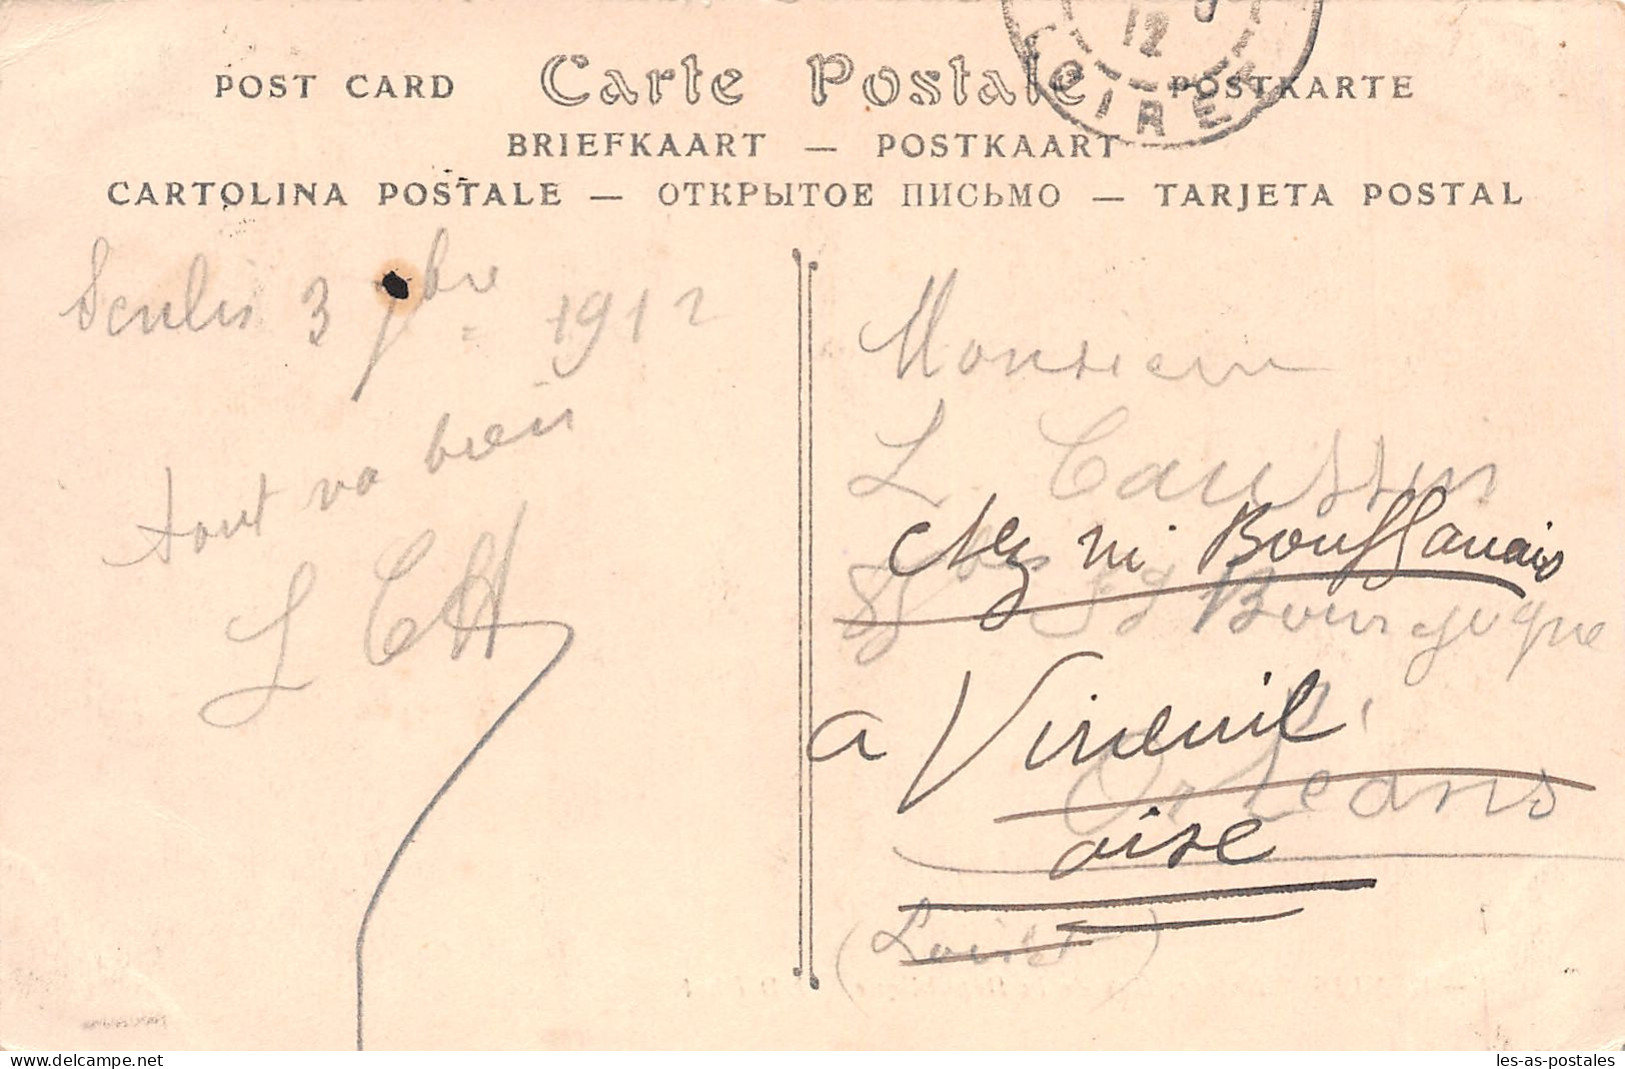 12
LOIRET
POST CARD Carte Postale POSTKARTE
BRIEFKAART — POSTKAART
CARTOLINA POSTALE — ОТКРЫТОЕ ПИСЬМО — TARJETA POSTAL
Senlis 3 7bre 1912
tout va bien
L CH
Monsieur
L Caussin
chez m Bouffanais
85 Fg Bourgogne
a Vineuil
Orléans
oise
(Loiret)
les-as-postales
www.delcampe.net